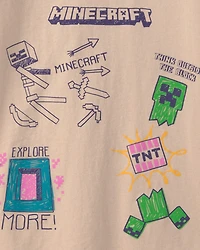 MINECRAFT
MINECRAFT
THINK OUTSIDE
THE BLOCK
TNT
EXPLORE
MORE!